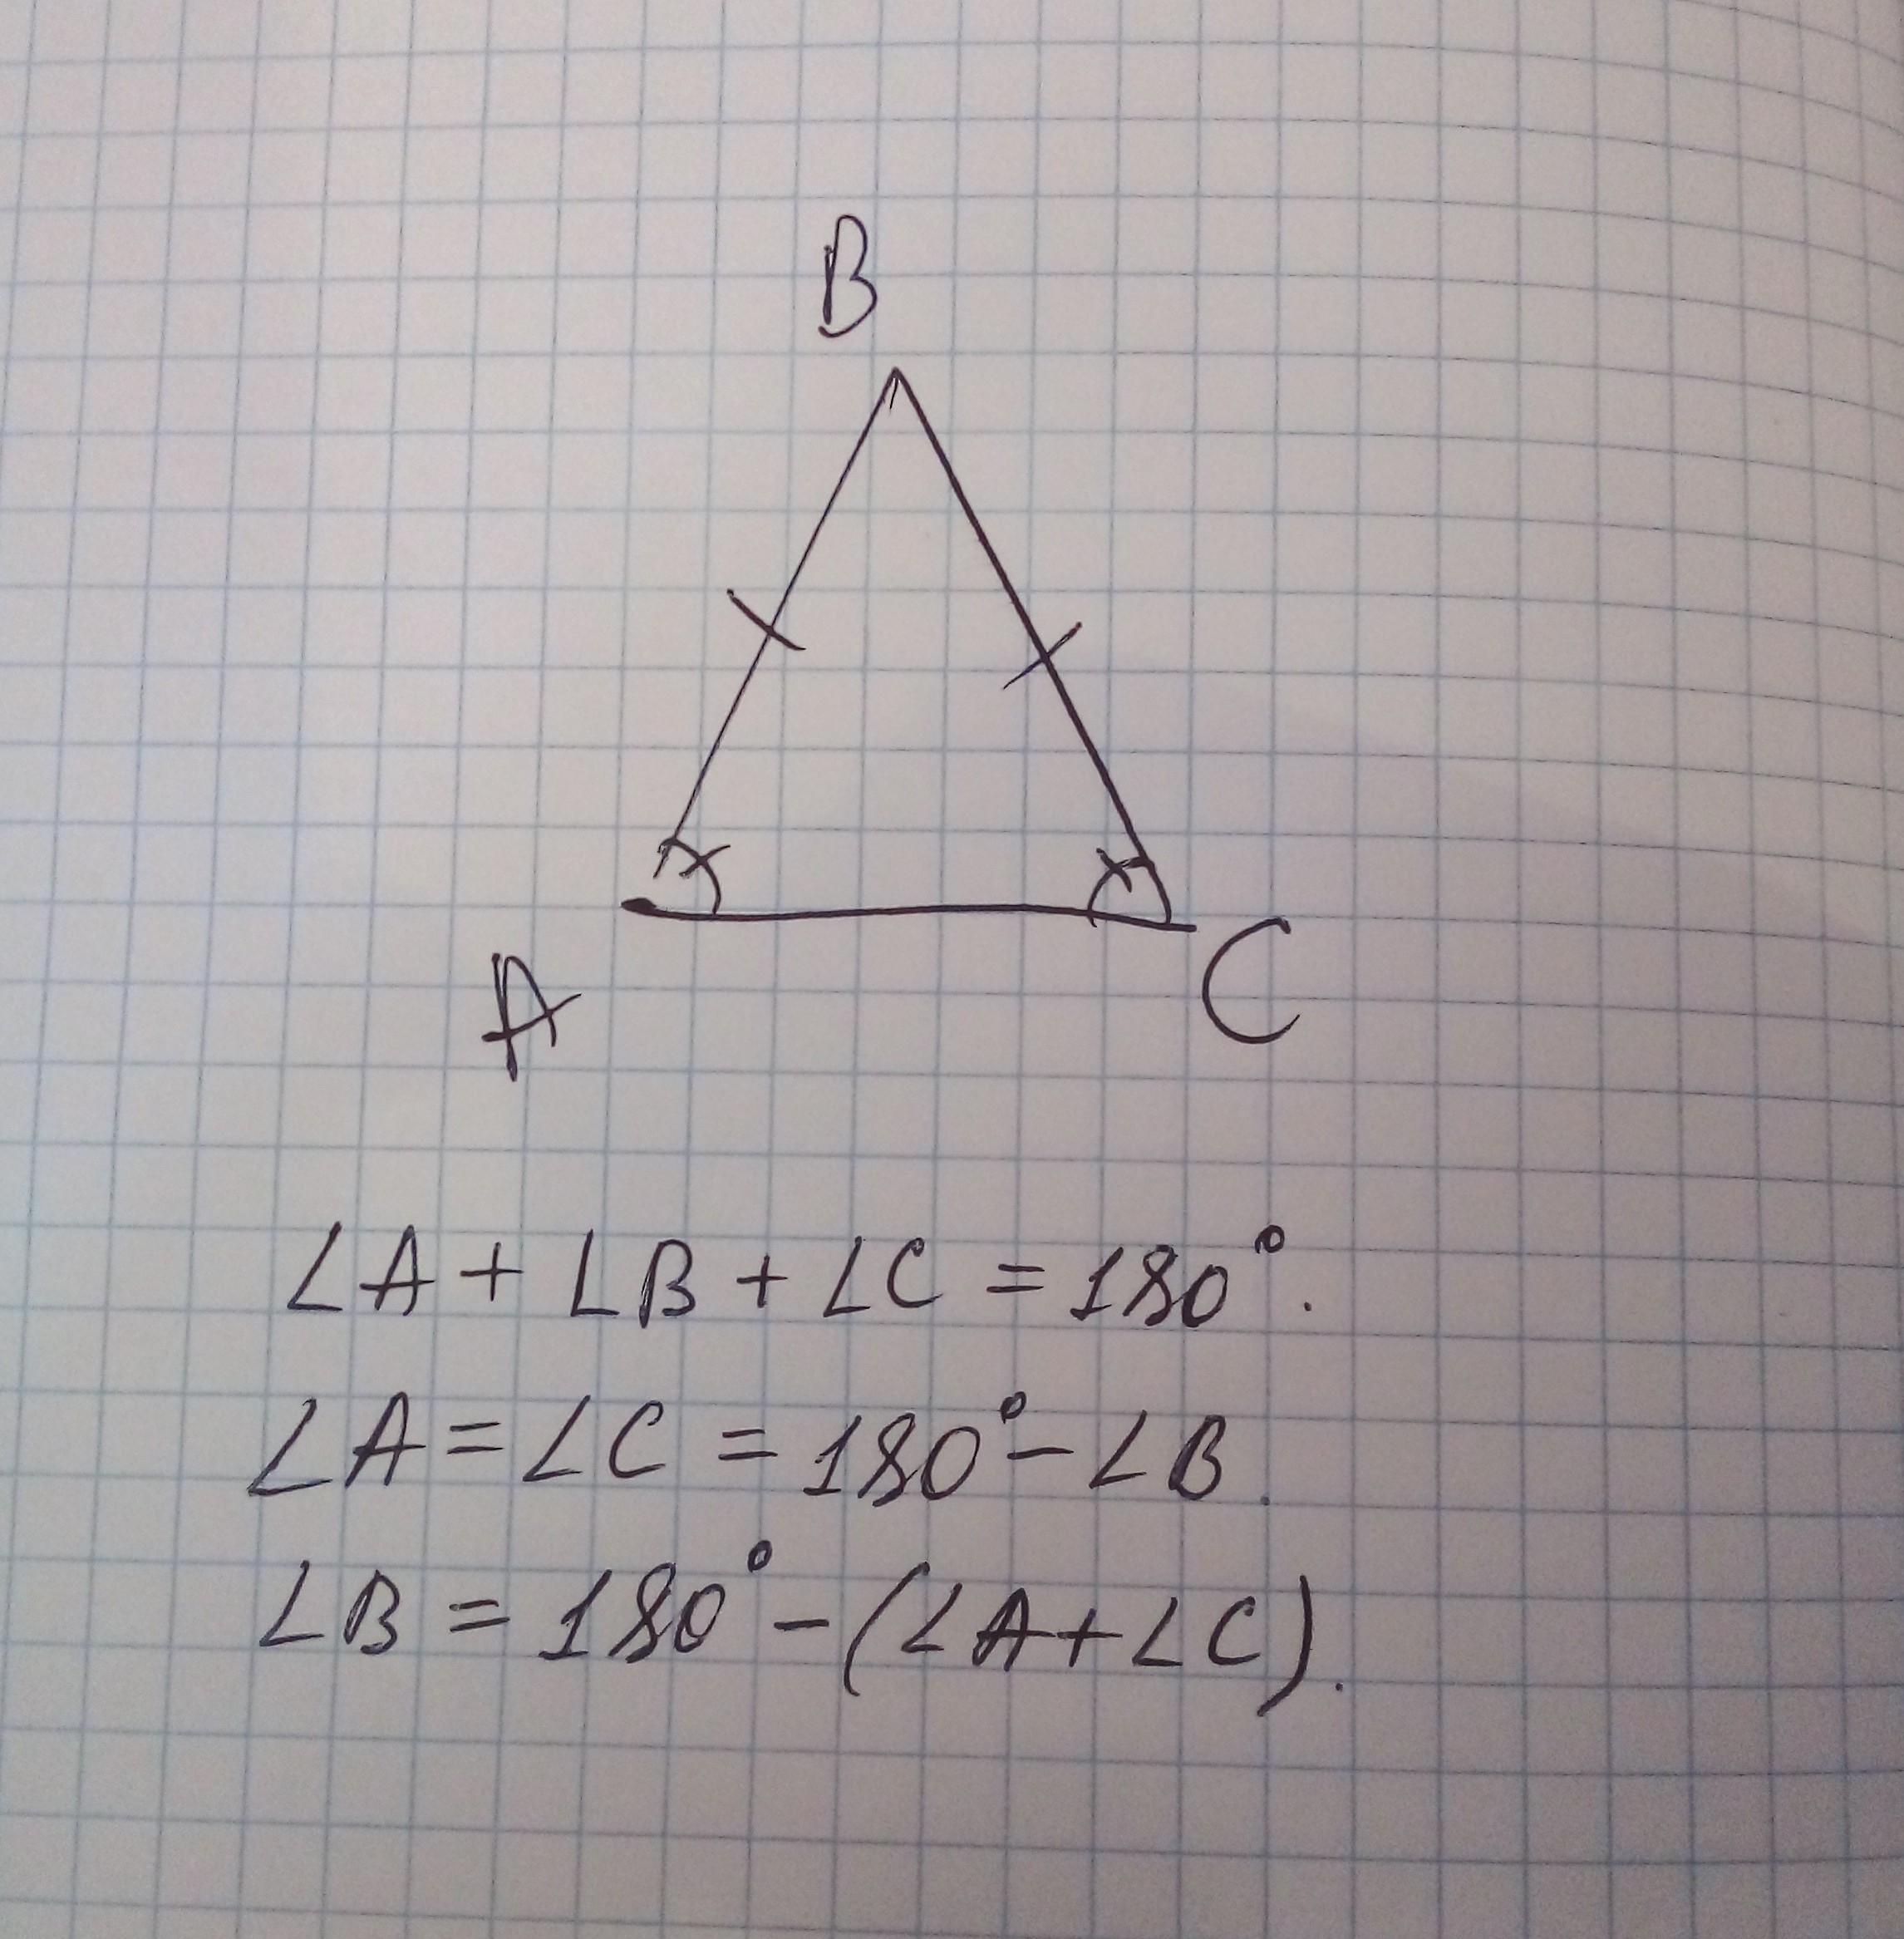 B
A
C
∠A + ∠B + ∠C = 180°.
∠A = ∠C = 180° - ∠B.
∠B = 180° - (∠A + ∠C).